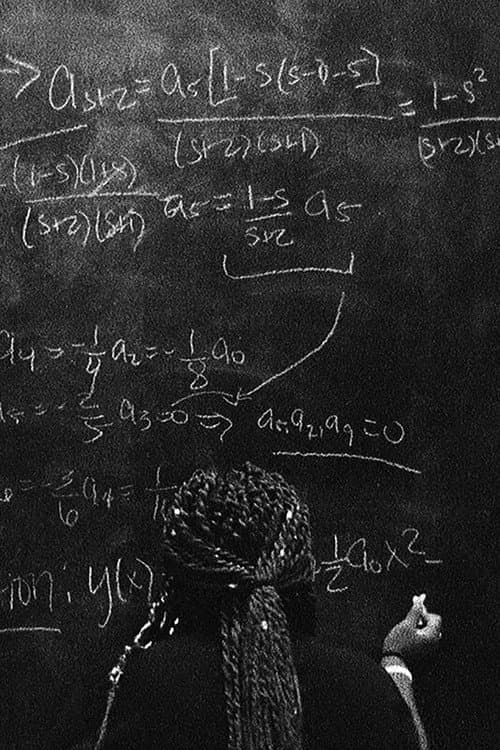 → a_{s+2} = a_s [1-s(s-1)-s] / (s+2)(s+1) = 1-s² / (s+2)(s
(1-s)(1+s) / (s+2)(s+1) a_s = 1-s / s+2 a_s
a_4 = -1/4 a_2 = -1/8 a_0
= -2/5 a_3 = 0 ⇒ a_5, a_7, a_9 = 0
= -3/6 a_4 = 1/1
ion: y(x) 1/2 a_0 x² -